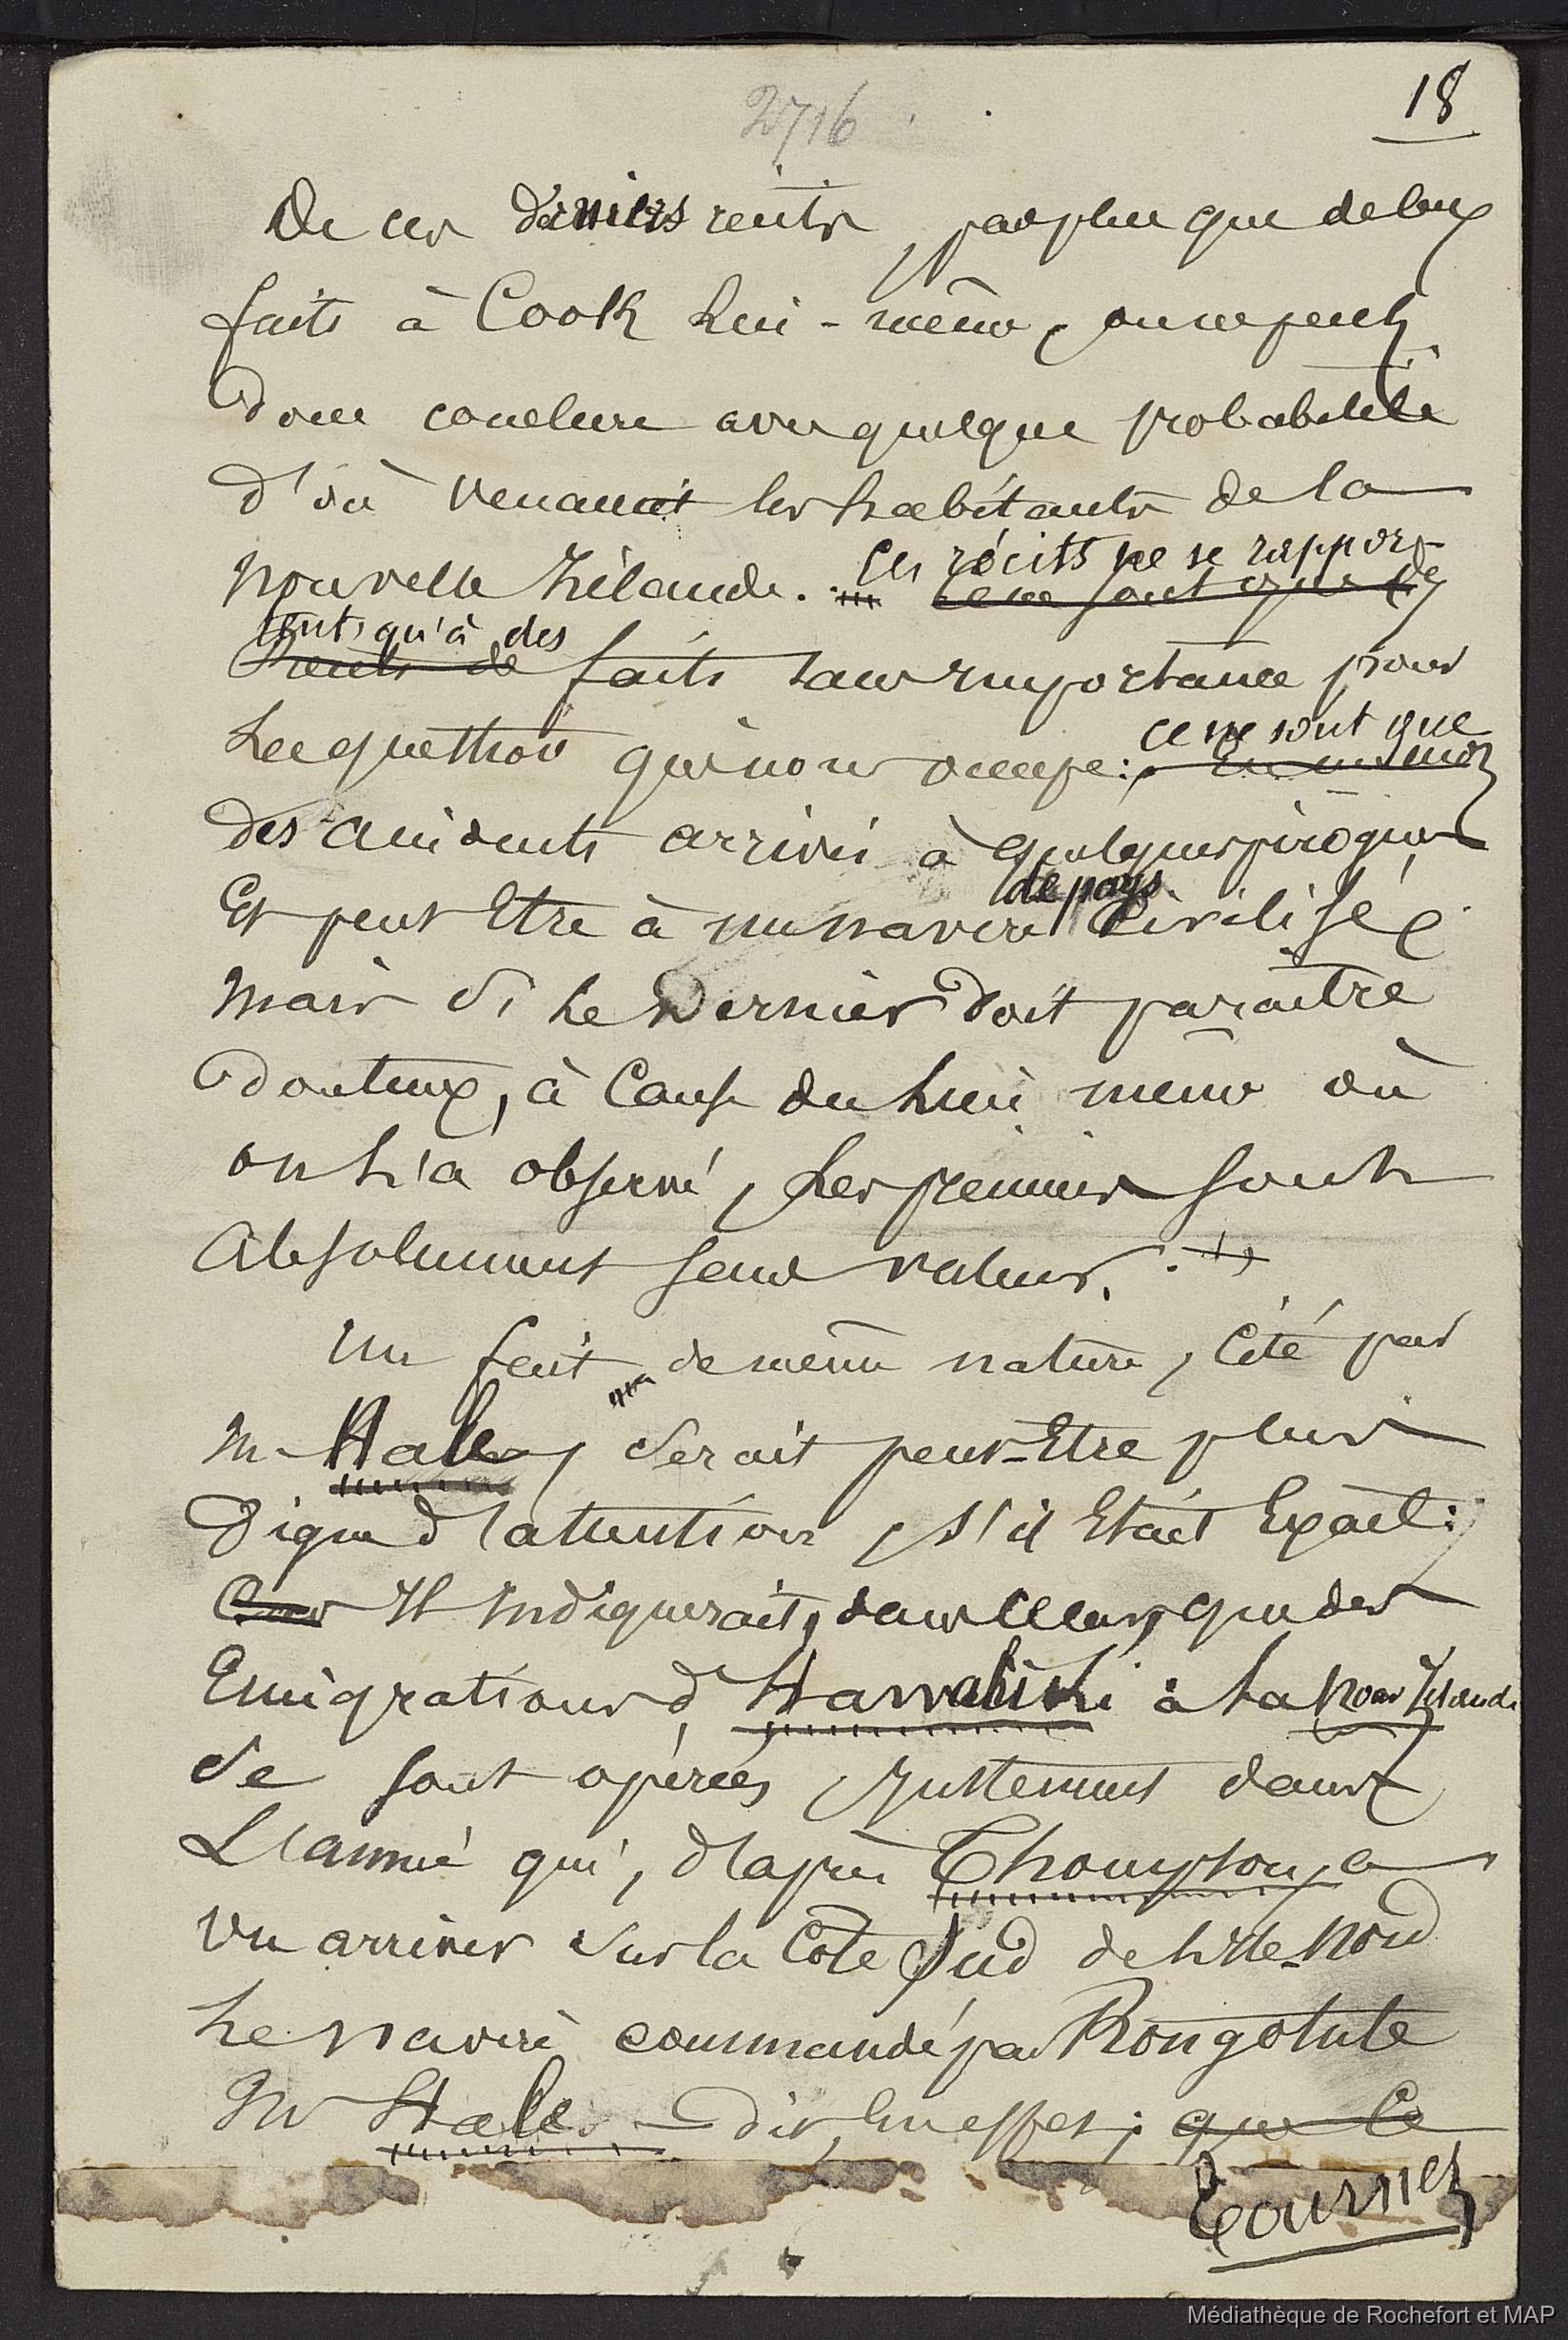 18
2716
De ces derniers récits, pas plus que de ceux
faits à Cook lui-même, on ne peut
donc conclure avec quelque probabilité
d'où venaient les habitants de la
Nouvelle Zélande. Ces récits ne se rappor-
Ce ne sont que des
tent qu'à des
récits de faits sans importance pour
la question qui nous occupe: ce ne sont que
des accidents arrivés à quelques pirogues
et peut être à un navire de pays civilisé.
Mais si le dernier doit paraître
douteux, à cause du lieu même où
on l'a observé, les premiers sont
absolument sans valeur.
Un fait de même nature, cité par
M. Hale, serait peut-être plus
digne d'attention, s'il était exact:
Car Il indiquerait, dans ce cas, que des
Emigrations d'Hawahiki à la Nouv Zélande
se sont opérées justement dans
l'année qui, d'après Thompson, a
vu arriver sur la côte Sud de l'île-Nord
le navire commandé par Rongotute
Mr Hale dit, en effet, que le
Tournez
Médiathèque de Rochefort et MAP